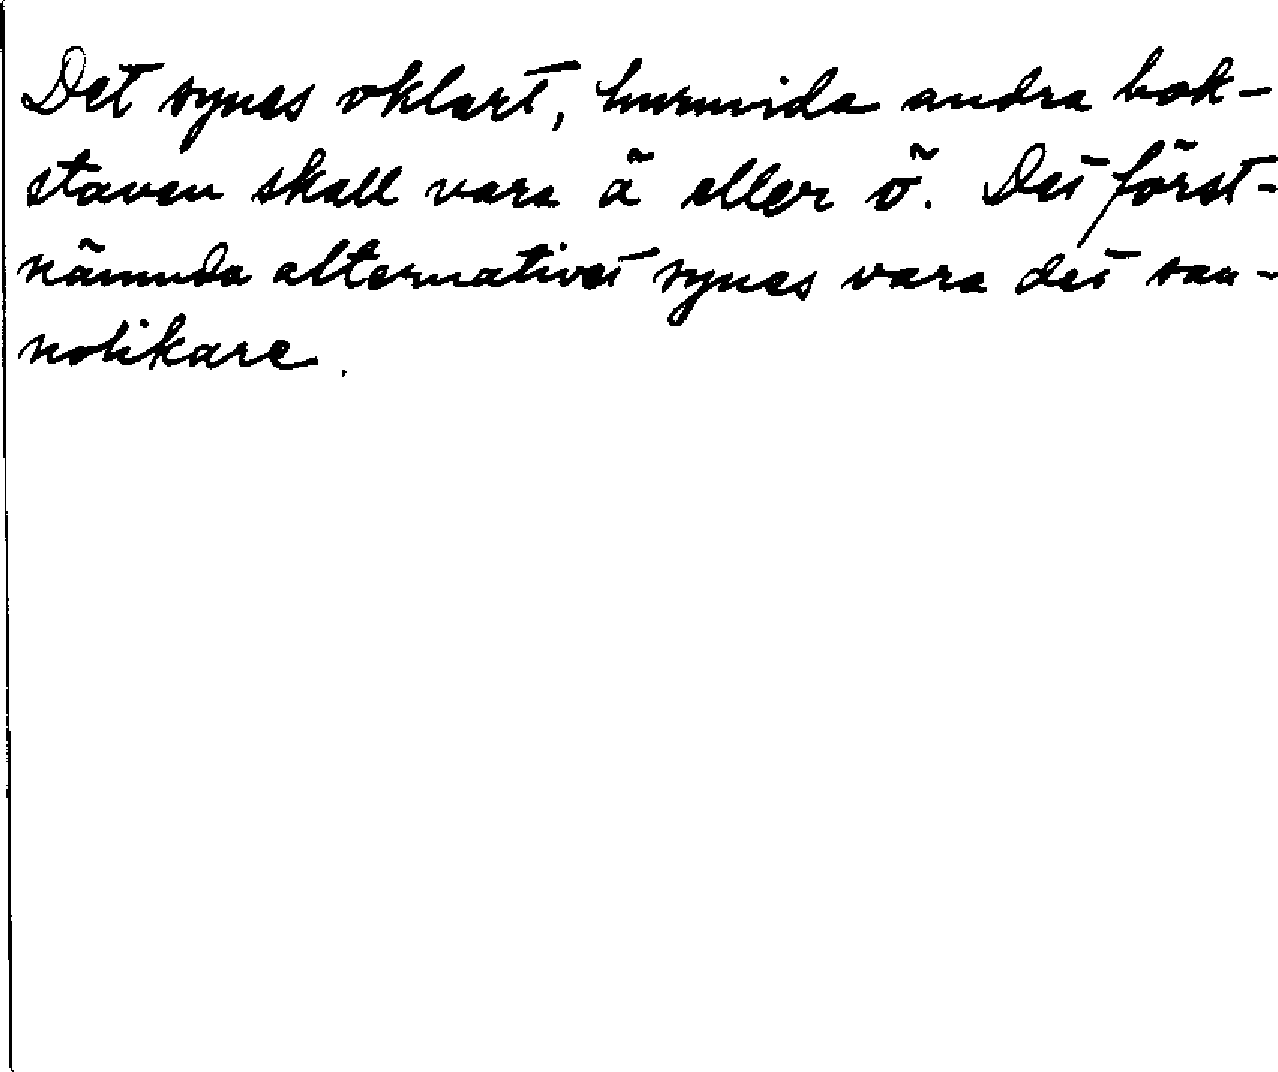 Det synes oklart, huruvida andra bok-
staven skall vara ä eller ö. Det först-
nämnda alternativet synes vara det san-
nolikare.